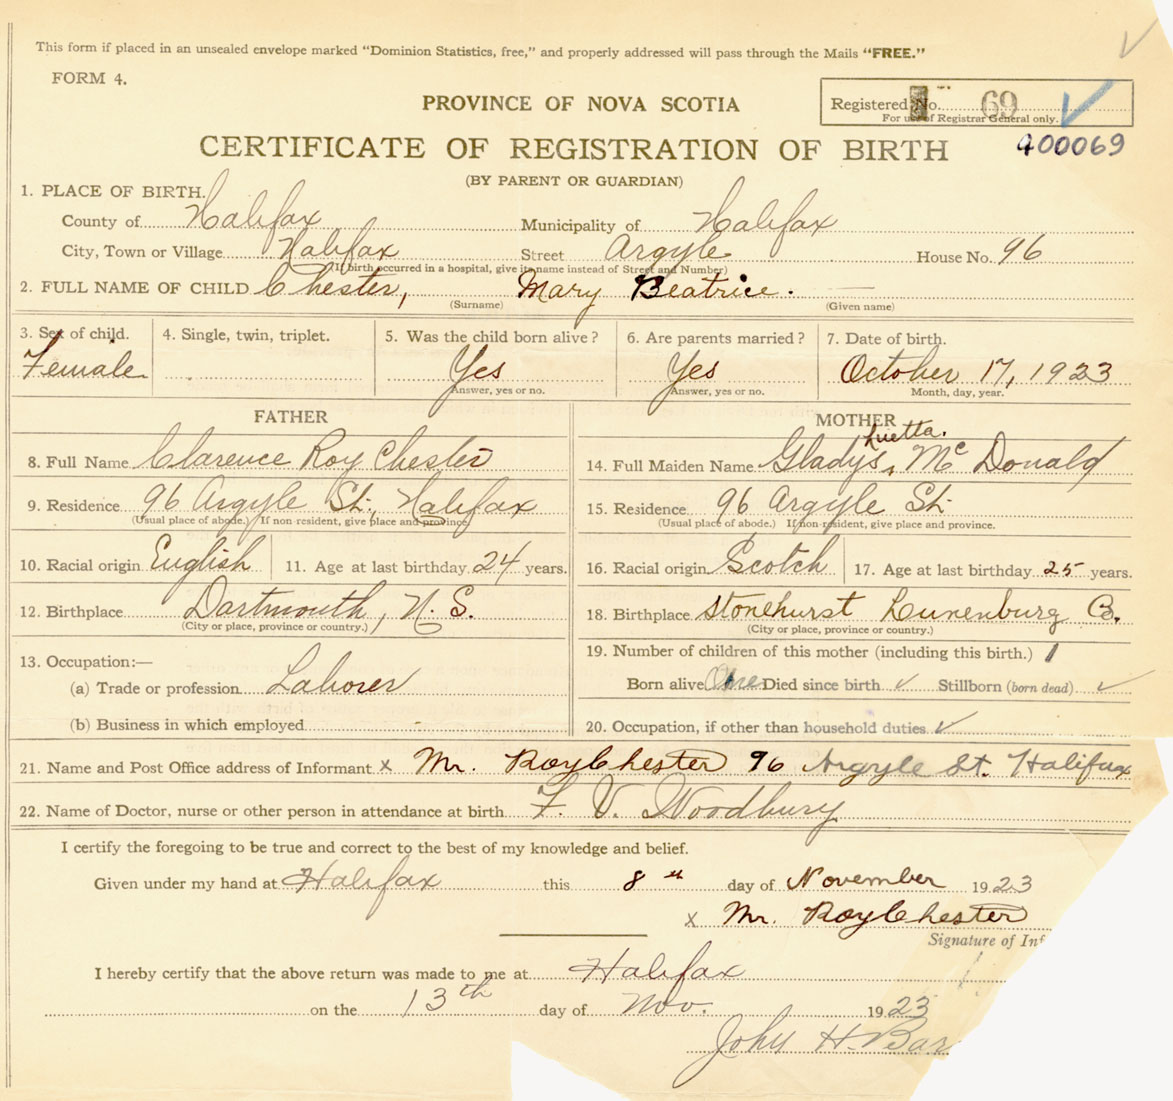 This form if placed in an unsealed envelope marked "Dominion Statistics, free," and properly addressed will pass through the Mails "FREE."
FORM 4.
PROVINCE OF NOVA SCOTIA
Registered No. 69
For use of Registrar General only.
CERTIFICATE OF REGISTRATION OF BIRTH
400069
(BY PARENT OR GUARDIAN)
1. PLACE OF BIRTH.
County of Halifax Municipality of Halifax
City, Town or Village Halifax Street Argyle House No. 96
(If birth occurred in a hospital, give its name instead of Street and Number)
2. FULL NAME OF CHILD Chester, Mary Beatrice.
(Surname) (Given name)
3. Sex of child. 4. Single, twin, triplet. 5. Was the child born alive? 6. Are parents married? 7. Date of birth.
Female Yes Yes October 17, 1923
Answer, yes or no. Answer, yes or no. Month, day, year.
FATHER MOTHER
8. Full Name Clarence Roy Chester 14. Full Maiden Name Gladys Luetta. McDonald
9. Residence 96 Argyle St., Halifax 15. Residence 96 Argyle St.
(Usual place of abode.) If non-resident, give place and province. (Usual place of abode.) If non-resident, give place and province.
10. Racial origin English 11. Age at last birthday 24 years. 16. Racial origin Scotch 17. Age at last birthday 25 years.
12. Birthplace Dartmouth, N.S. 18. Birthplace Stonehurst Lunenburg Co.
(City or place, province or country.) (City or place, province or country.)
13. Occupation:— 19. Number of children of this mother (including this birth.) 1
(a) Trade or profession Laborer Born alive One Died since birth ✓ Stillborn (born dead) ✓
(b) Business in which employed - 20. Occupation, if other than household duties ✓
21. Name and Post Office address of Informant x Mr. Roy Chester 96 Argyle St. Halifax
22. Name of Doctor, nurse or other person in attendance at birth F. V. Woodbury
I certify the foregoing to be true and correct to the best of my knowledge and belief.
Given under my hand at Halifax this 8th day of November 1923
x Mr. Roy Chester
Signature of Inf
I hereby certify that the above return was made to me at Halifax
on the 13th day of Nov. 1923
John H. Bar